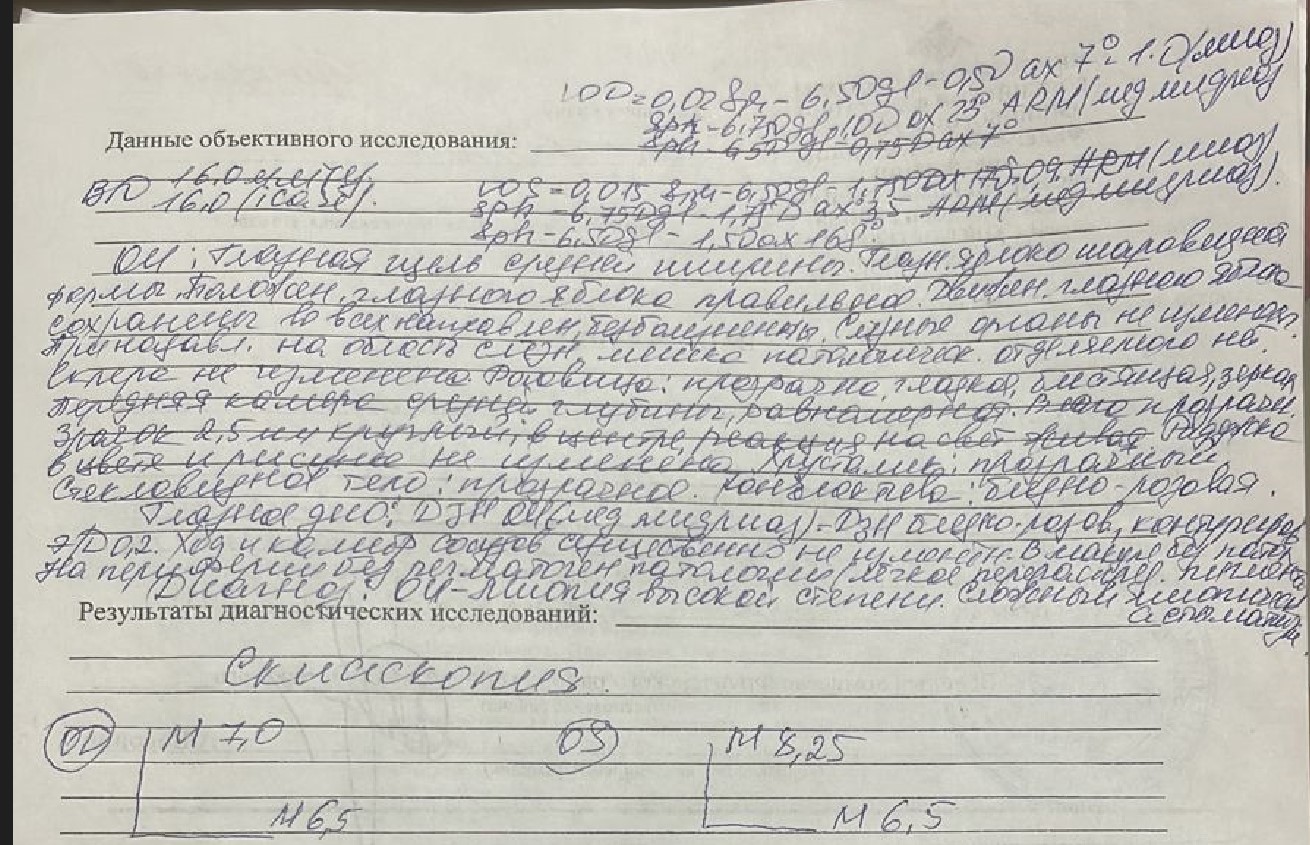 VOD=0,02 sph - 6,50 cyl - 0,5D ax 7° = 1.0 (миоз)
sph - 6,75 cyl - 1,0D ax 23° ARM (мед мидриаз)
Данные объективного исследования:
sph - 6,5D cyl - 0,75D ax 7°
16,0 (icare).
VOS = 0,015 sph - 6,50 cyl - 1,75D ax 175 = 0,9 ARM (миоз)
sph - 6,75D cyl - 1,75D ax 35 ARM (мед мидриаз).
sph - 6,50 cyl - 1,50 ax 168°.
ОИ: Глазная щель средней ширины. Глазн. яблоко шаровидной
формы. Положен. глазного яблока правильное. Движен. глазного яблока
сохранены во всех направлен, безболезненны. Слезные органы не изменены.
При надавл. на область слезн. мешка патологическ. отделяемого нет.
Склера не изменена. Роговица: прозрачна, гладкая, блестящая, зеркал
Передняя камера средней глубины, равномерная. Влага прозрачн.
Зрачок 2,5 мм круглый, в центре, реакция на свет живая. Радужка
в цвете и рисунке не изменена. Хрусталик: прозрачный
Стекловидное тело: прозрачное. Конъюнктива: бледно-розовая.
Глазное дно: ДЗН ОИ (мед мидриаз) - ДЗН бледно-розов, контуриров
Э/Д 0,2. Ход и калибр сосудов существенно не изменен. В макуле без патол.
На периферии без регматоген патологии (лёгкое перераспред. пигмента)
Диагноз: ОИ - Миопия высокой степени. Сложный миопическ
астигматизм.
Результаты диагностических исследований:
Скиаскопия.
OD M 7,0 OS M 8,25
M 6,5 M 6,5